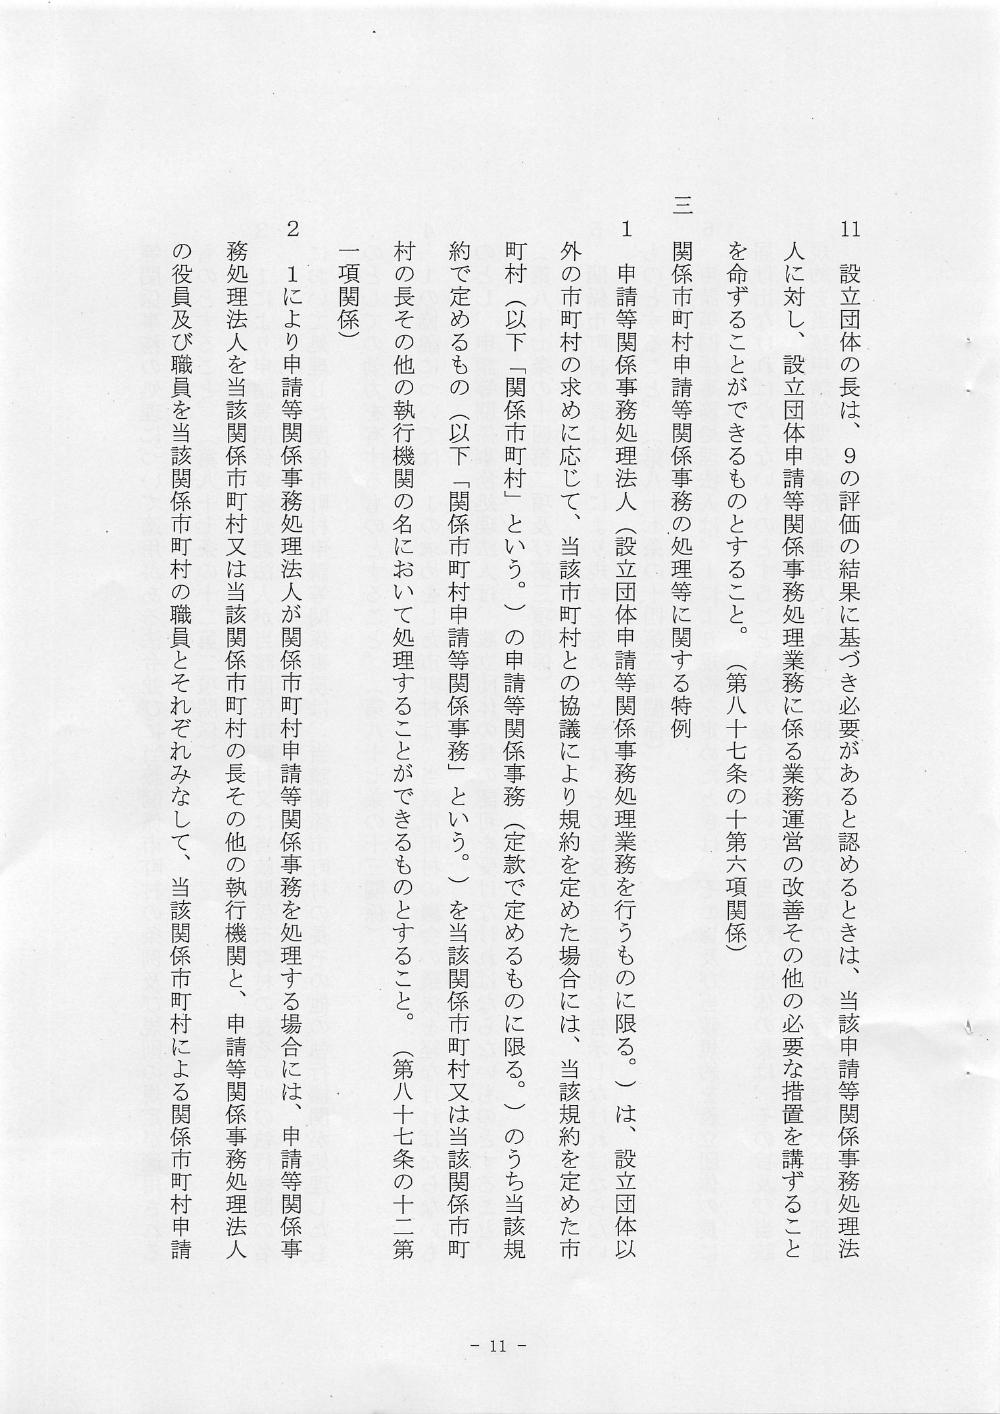 11　設立団体の長は、９の評価の結果に基づき必要があると認めるときは、当該申請等関係事務処理法
人に対し、設立団体申請等関係事務処理業務に係る業務運営の改善その他の必要な措置を講ずること
を命ずることができるものとすること。（第八十七条の十第六項関係）
三　関係市町村申請等関係事務の処理等に関する特例
１　申請等関係事務処理法人（設立団体申請等関係事務処理業務を行うものに限る。）は、設立団体以
外の市町村の求めに応じて、当該市町村との協議により規約を定めた場合には、当該規約を定めた市
町村（以下「関係市町村」という。）の申請等関係事務（定款で定めるものに限る。）のうち当該規
約で定めるもの（以下「関係市町村申請等関係事務」という。）を当該関係市町村又は当該関係市町
村の長その他の執行機関の名において処理することができるものとすること。（第八十七条の十二第
一項関係）
２　１により申請等関係事務処理法人が関係市町村申請等関係事務を処理する場合には、申請等関係事
務処理法人を当該関係市町村又は当該関係市町村の長その他の執行機関と、申請等関係事務処理法人
の役員及び職員を当該関係市町村の職員とそれぞれみなして、当該関係市町村による関係市町村申請
- 11 -